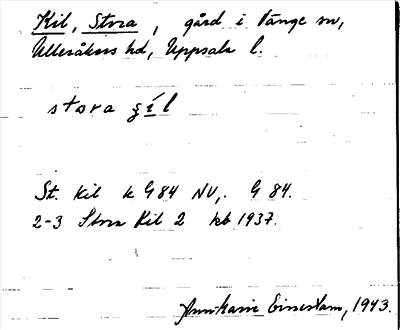 Kil, Stora, gård i Vänge sn,
Ulleråkers hd, Uppsala l.
stora g̣íl
St. Kil k G 84 NV,. G 84.
2-3 Stora Kil 2 kb 1937.
1943.